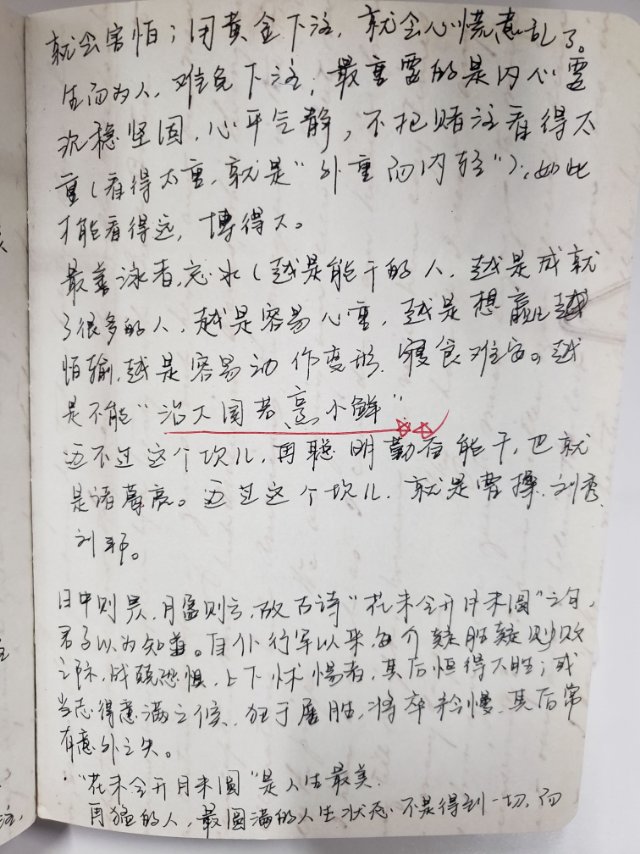 就会害怕；用黄金下注，就会心慌意乱了。
生而为人，难免下注，最重要的是内心要
沉稳坚固，心平气静，不把赌注看得太
重（看得太重，就是“外重而内轻”），如此
才能看得远，博得大。
最善泳者，忘水（越是能干的人，越是成就
了很多的人，越是容易心重，越是想赢越
怕输，越是容易动作变形，寝食难安。越
是不能“治大国若烹小鲜”
迈不过这个坎儿，再聪明勤奋能干，也就
是诸葛亮。迈过这个坎儿，就是曹操、刘秀、
刘邦。
日中则昃，月盈则亏，故古诗“花未全开月未圆”之句，
君子以为知道。自仆行军以来，每介疑胜疑败
之际，战兢恐惧，上下怵惕者，其后恒得大胜；或
当志得意满之候，狂于屡胜，将卒矜慢，其后常
有意外之失。
“花未全开月未圆”是人生最美
再猛的人，最圆满的人生状态，不是得到一切，而